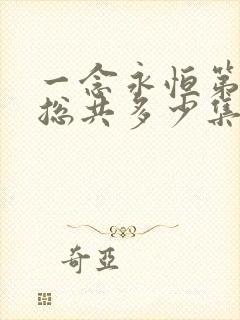 一念永恒第
总共多少集
奇亚